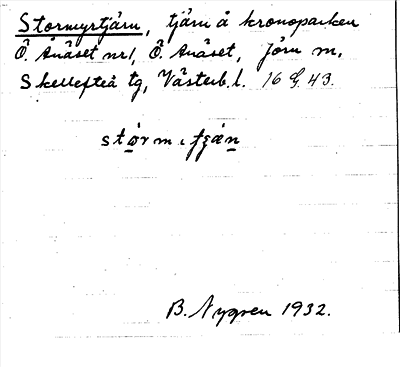 Stormyrtjärn, tjärn å kronoparken
Ö. Ånäset nr 1, Ö. Ånäset, Jörn sn,
Skellefteå tg, Västerb. l. 16 G. 43.
B. Nygren 1932.